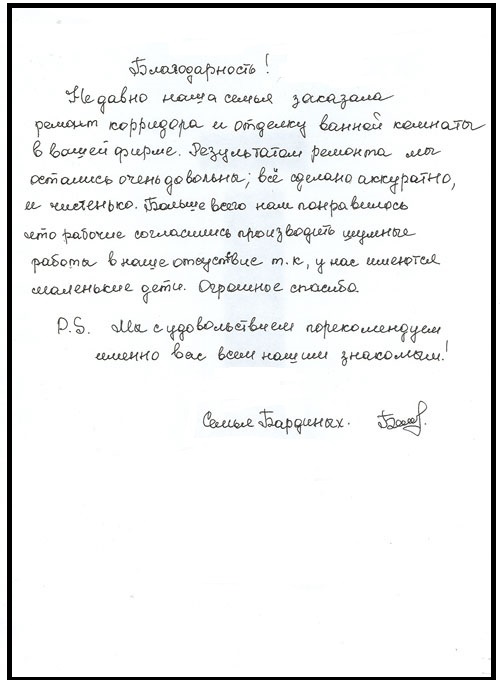 Благодарность!
Не давно наша семья заказала
ремонт корридора и отделку ванной комнаты
в вашей фирме. Результатом ремонта мы
остались очень довольны; всё сделано аккуратно,
и чистенько. Больше всего нам понравилось
что рабочие согласились производить шумные
работы в наше отсуствие т.к, у нас имеются
маленькие дети. Огромное спасибо.
P.S. Мы с удовольствием порекомендуем
именно вас всем нашим знакомым!
Семья Бардиных.